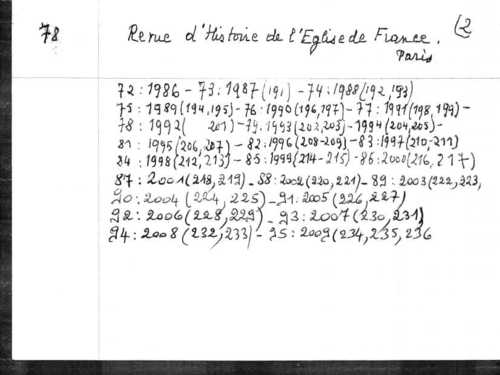 78 Revue d'Histoire de l'Eglise de France. (2
Paris
72:1986 - 73:1987(191) - 74:1988(192,193)
75:1989(194,195) - 76:1990(196,197) - 77:1991(198,199) -
78:1992( 201) - 79:1993(202,203) - 1994(204,205) -
81:1995(206,207) - 82:1996(208-209) - 83:1997(210-211)
84:1998(212,213) - 85:1999(214-215) - 86:2000(216,217)
87:2001(218,219) - 88:2002(220,221) - 89:2003(222,223,
90:2004(224,225) - 91:2005(226,227)
92:2006(228,229) - 93:2007(230,231)
94:2008(232,233) - 95:2009(234,235,236